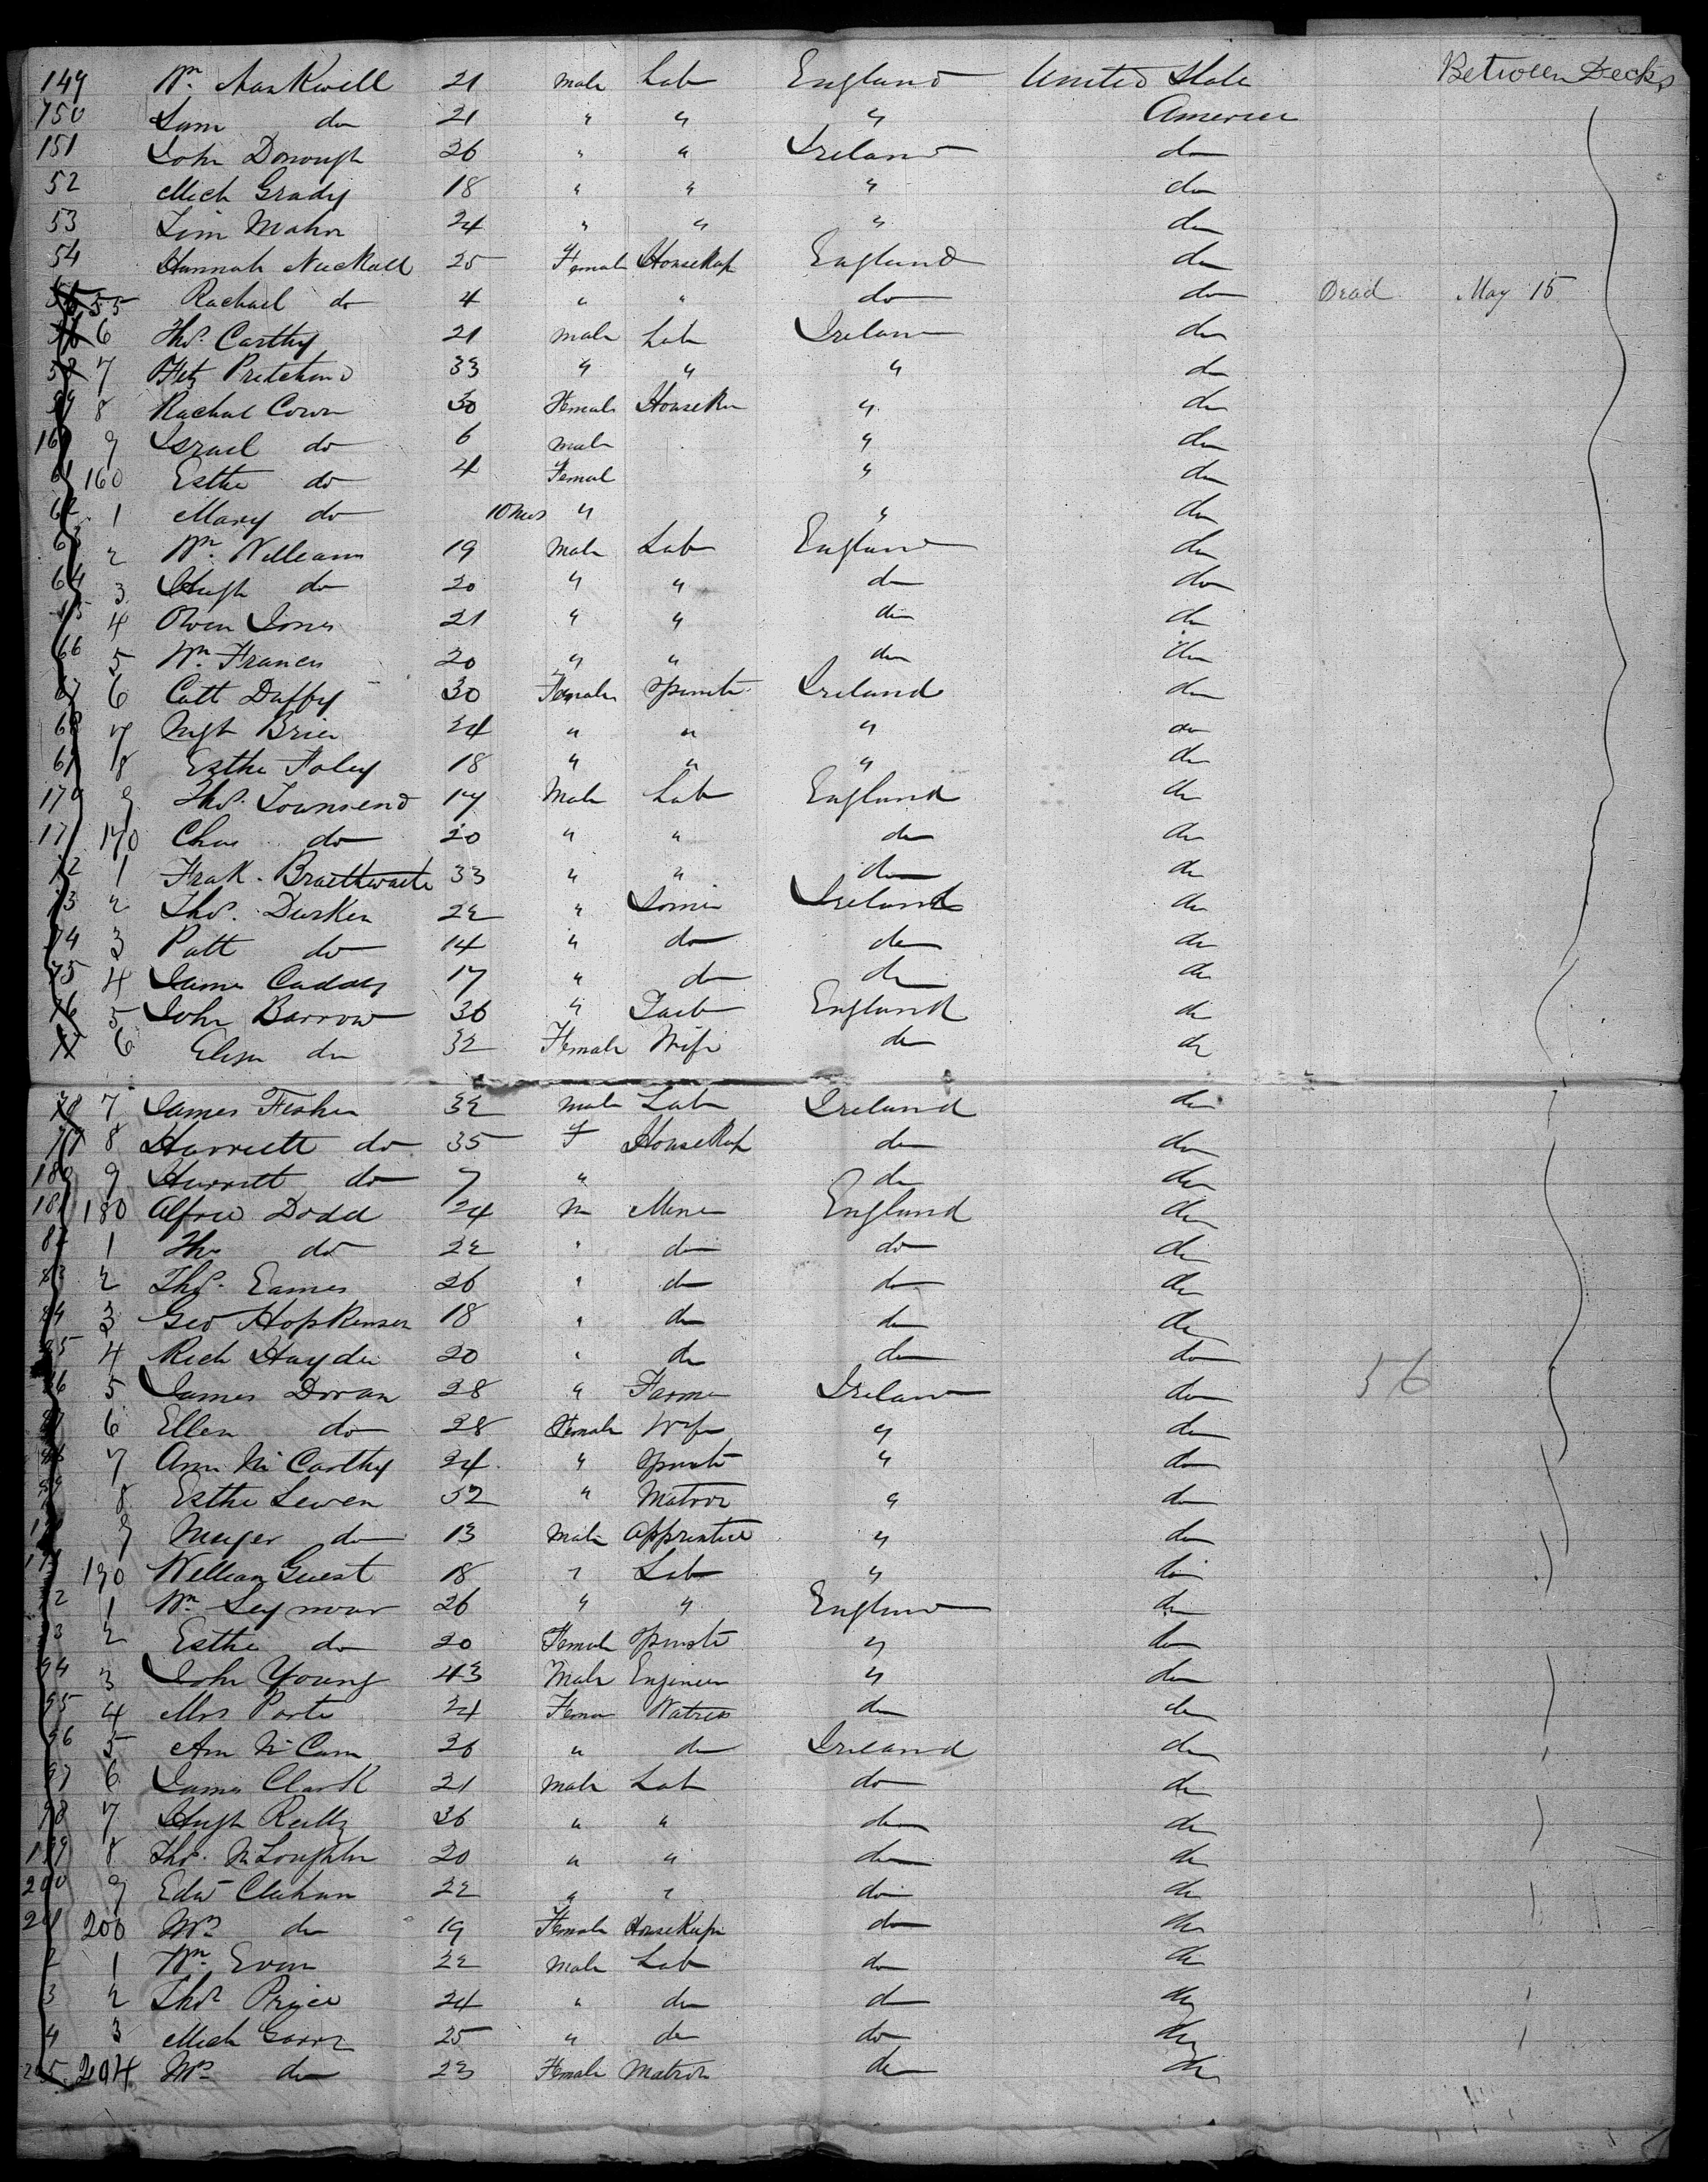 149 Wm Hankwell 21 Male Lab England United State Between Decks
150 Sam do 21 " " " America
151 John Donough 26 " " Ireland do
52 Mich Grady 18 " " " do
53 Tim Mahon 24 " " " do
54 Hannah Nuckall 25 Female Housekep England do
55 Rachael do 4 " " do do Dead May 15
6 Thos. Carthy 21 Male Lab Ireland do
58 7 Pritchard 33 " " " do
59 8 Rachael Cown 30 Female Houseke " do
160 9 Israel do 6 Male " do
61 160 Esthe do 4 Femal " do
62 1 Mary do 10 mos " " do
63 2 Wm. Williams 19 Male Lab England do
64 3 Hugh do 20 " " do do
65 4 Owen Jones 21 " " do do
66 5 Wm. Francis 20 " " do do
67 6 Catt Duffy 30 Female Spinste Ireland do
68 7 Mgt Brien 24 " " " do
69 8 Esthe Foley 18 " " " do
170 9 Thos. Townsend 17 Male Lab England do
171 170 Chas do 20 " " do do
72 1 Frak. Braithwaite 33 " " do do
73 2 Thos. Durken 22 " Ireland do
74 3 Patt do 14 " do do do
75 4 James Caddey 17 " do do do
76 5 John Barrow 36 " England do
77 6 Eliza do 32 Female Wife do do
78 7 James Fisher 32 Male Lab Ireland do
79 8 Harriett do 35 F Housekep do do
180 9 Harriett do 7 " do do
181 180 Alfred Dodd 24 M Mine England do
82 1 Tho do 22 " do do do
83 2 Thos. Eames 26 " do do do
84 3 Geo Hopkinson 18 " do do do
85 4 Rich Hayden 20 " do do do 56
86 5 James Doran 28 " Farme Ireland do
87 6 Ellen do 28 Female Wife " do
88 7 Ann McCarthy 24 " Spinste " do
89 8 Esthe Lewen 52 " Matron " do
9 Meyer do 13 Male Apprentice " do
191 190 William Guest 18 " Lab " do
2 1 Wm Seymour 26 " " England do
3 2 Esthe do 20 Female Spinste " do
94 3 John Young 43 Male Engineer " do
95 4 Mrs Porte 24 Fema Watress do do
96 5 Ann McCann 26 " do Ireland do
97 6 James Clark 21 Male Lab do do
98 7 Hugh Reilly 36 " " do do
199 8 Thos. McLoughlin 20 " " do do
200 9 Edwd Clahan 22 " " do do
201 200 Mrs do 19 Female Housekeepr do do
2 1 Wm Evan 22 Male Lab do do
3 2 Thos Price 24 " do do do
4 3 Mich 25 " do do do
205 204 Mrs do 23 Female Matron do do